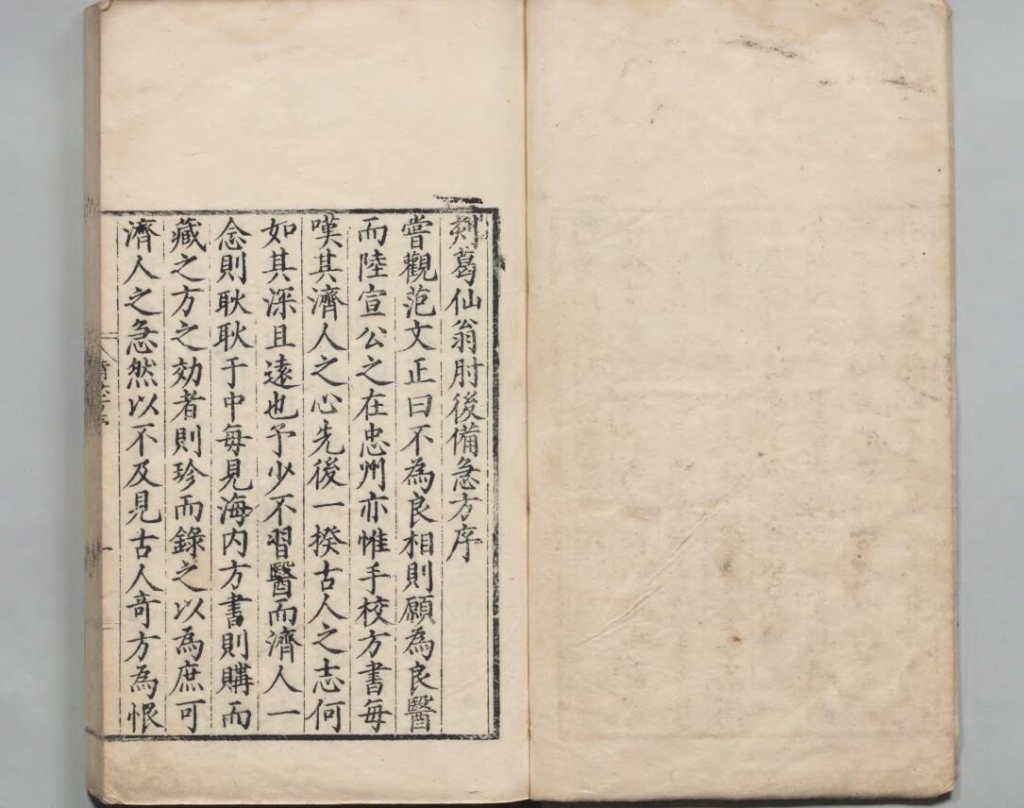 刻葛仙翁肘後備急方序
嘗觀范文正曰不為良相則願為良醫
而陸宣公之在忠州亦惟手校方書每
嘆其濟人之心先後一揆古人之志何
如其深且遠也予少不習醫而濟人一
念則耿耿于中每見海內方書則購而
藏之方之効者則珍而錄之以為庶可
濟人之急然以不及見古人奇方為恨